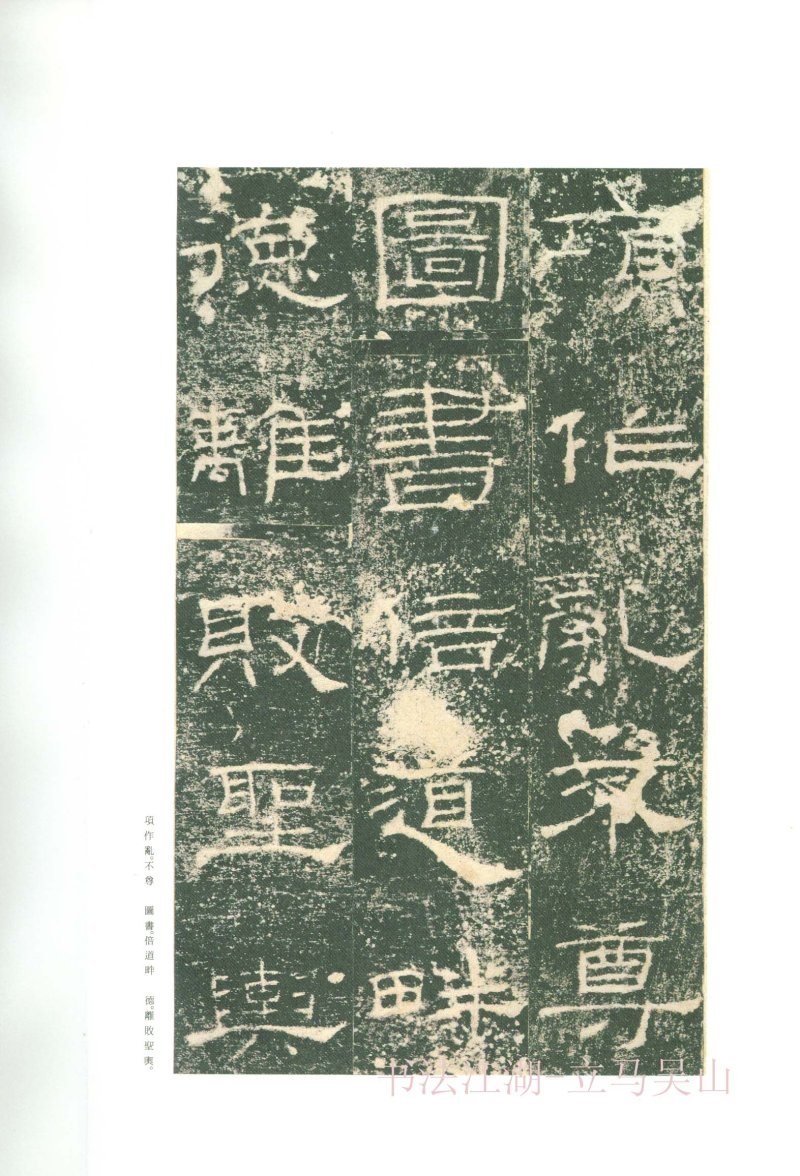 項作亂不尊
圖書倍道畔
德離敗聖輿
項作亂。不尊　圖書。倍道畔　德。離敗聖輿。
书法江湖-立马吴山